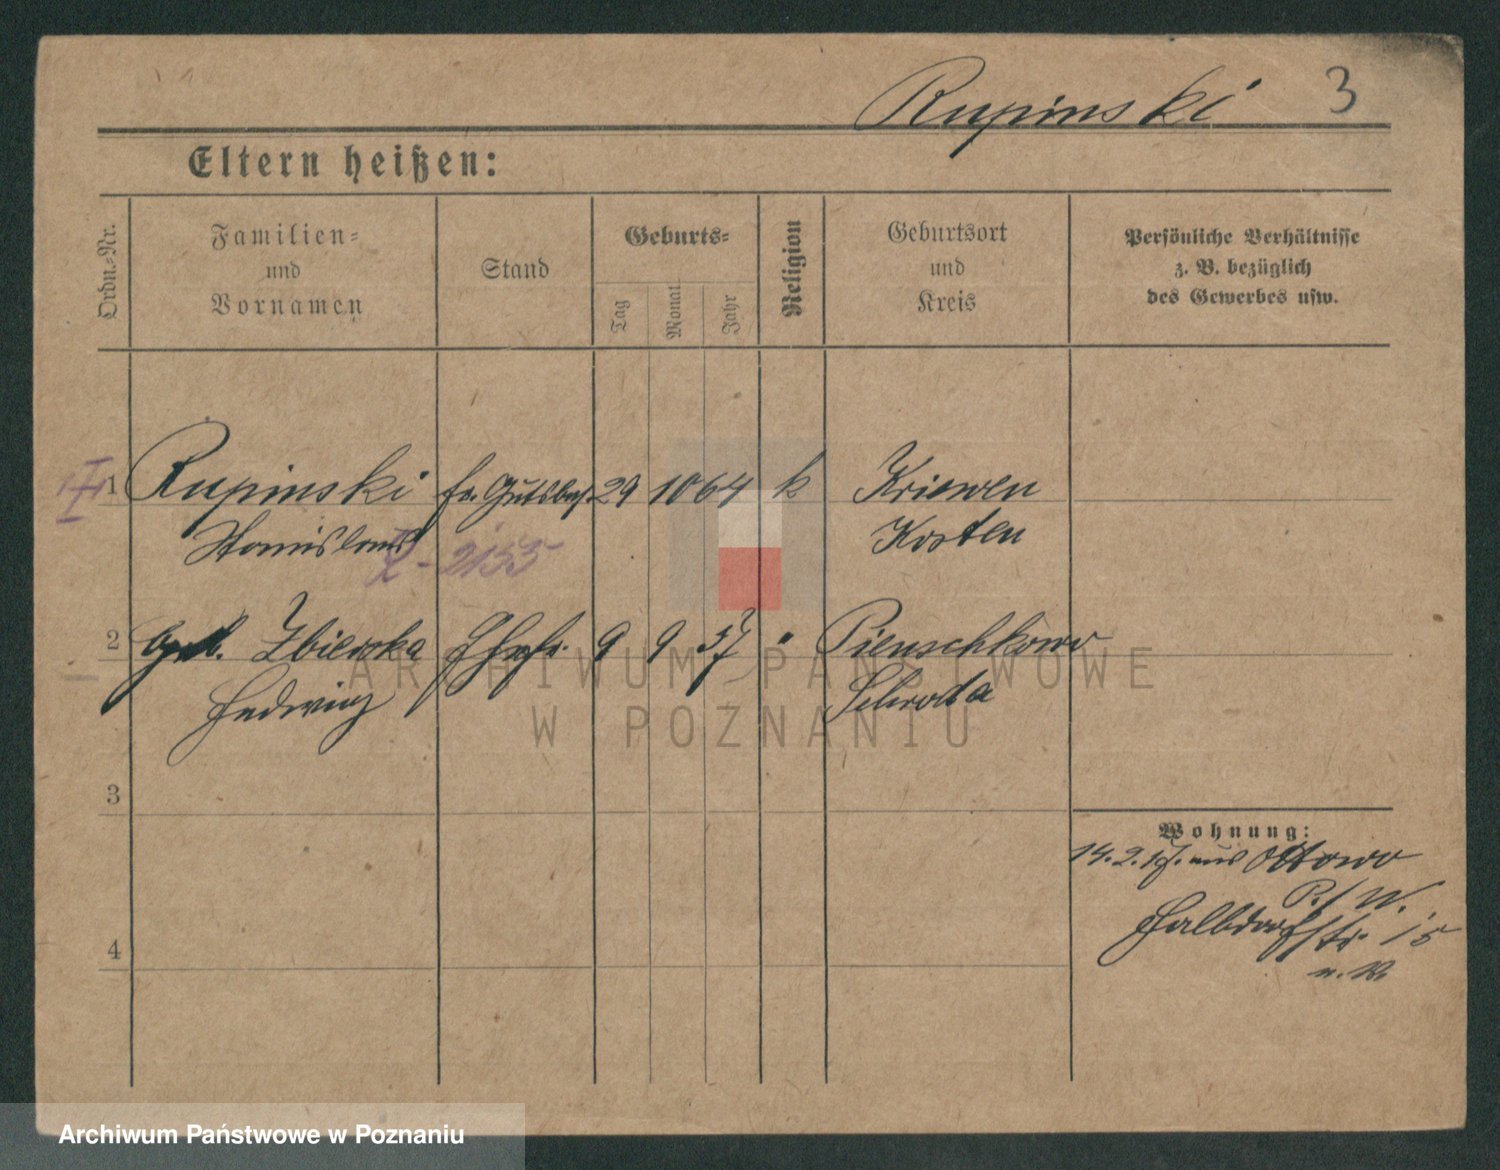 Rupinski 3
Eltern heißen:
Ordn.-Nr.
Familien-
und
Vornamen
Stand
Geburts-
Tag
Monat
Jahr
Religion
Geburtsort
und
Kreis
Persönliche Verhältnisse
z. B. bezüglich
des Gewerbes usw.
1 Rupinski fr. Gutsbes. 29 10 64 k Kriewen
Stanislaus Kosten
2153
2 geb. Zbierska Ehefr. 9 9 57 " Pienschkowo
Hedwig Schroda
3
Wohnung:
14. 2. 17. aus Ottowo
P./W.
Halbdorfstr. 15
4
ARCHIWUM PAŃSTWOWE
W POZNANIU
Archiwum Państwowe w Poznaniu